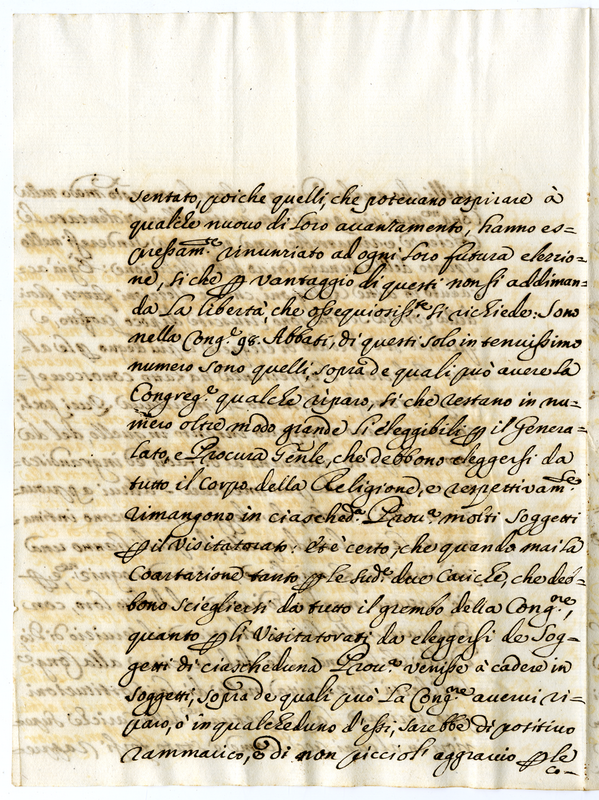 sentato, poiche quelli, che poteuano aspirare à
qualche nuouo di loro auanzamento, hanno es=
pressam.te rinunziato ad ogni loro futura elezzio=
ne, si che p vantaggio di questi non si addiman=
da La libertà, che ossequiosiss.te si richiede: Sono
nella Cong.e 98. Abbati, di questi solo in tenuissimo
numero sono quelli, sopra de quali può auere la
Congreg.e qualche riparo, si che restano in nu=
mero oltre modo grande li eleggibili p il Genera=
lato, e Procura Gen̄le, che debbono eleggersi da
tutto il Corpo della Religione, e respettivam.te
rimangono in ciasched.a Prou.a molti soggetti
p il Visitatorato: Et è certo, che quando mai la
Coartazione tanto p le sud.e due Cariche, che deb=
bono sciegliersi da tutto il grembo della Cong.ne,
quanto p li Visitatorati da eleggersi de Sog=
getti di ciascheduna Prou.a venisse à cadere in
soggetti, sopra de quali può La Cong.ne auerui ri=
paro, ò in qualcheduno d'essi, sarebbe di positiuo
rammarico, e di non piccioli aggrauio p le
co=